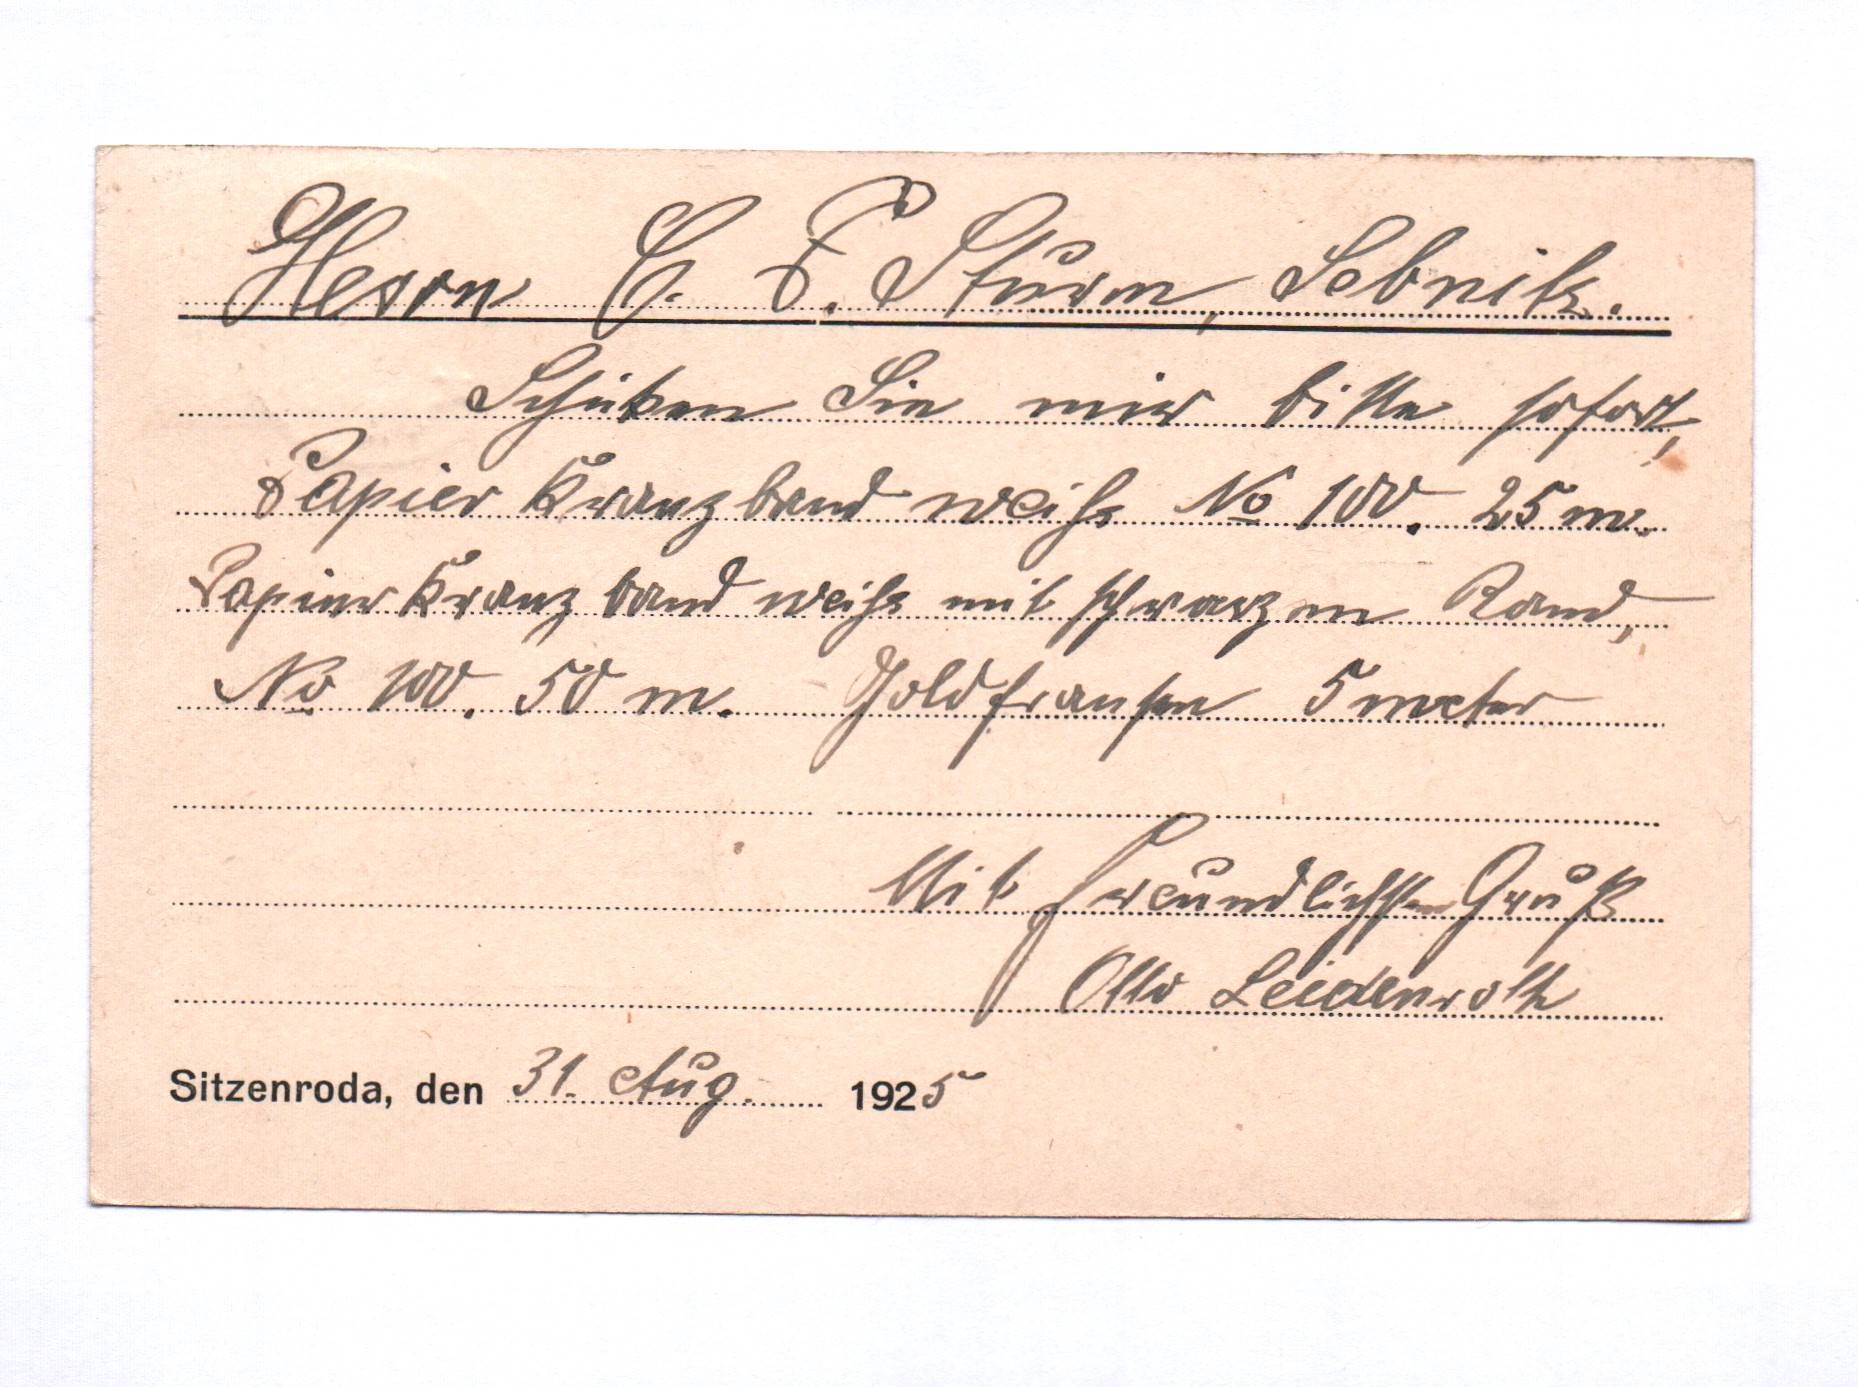 Herrn C. F. Sturm, Sebnitz.
Schicken Sie mir bitte sofort,
Papier Kranzband weiß No 100. 25 m.
Papier Kranzband weiß mit schwarzen Rand,
No 100. 50 m. Goldfransen 5 meter
Mit freundlichsten Gruß
Otto Leidenroth
Sitzenroda, den 31. Aug. 1925